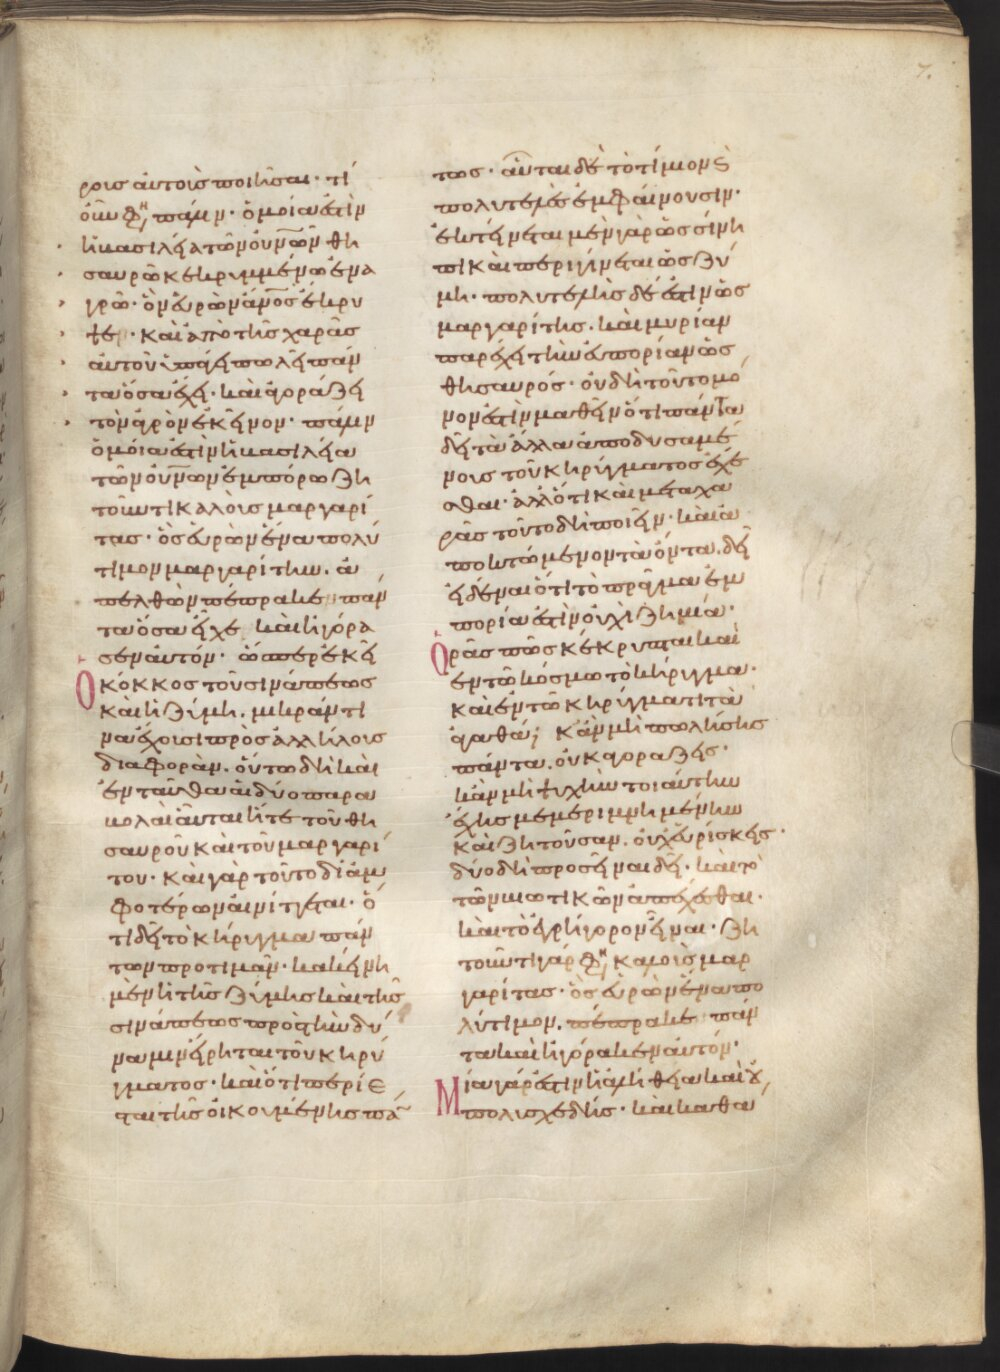 7.
ροις αὐτοὶς ποιῆσαι· τί
οὖν φη, πάλιν· ὁμοία ἐστὶν
ἡ βασιλεία τῶν οὐνῶν θη
σαυρῶ κεκρυμμένω ἐν α
γρῶ· ὃν εὑρὼν ἄνος ἔκρυ
ψε· καὶ ἀπὸ τῆς χαρᾶς
αὐτοῦ ὑπάγει πωλεῖ πάν
τα ὅσα ἔχει· καὶ ἀγοράζει
τὸν ἀγρὸν ἐκεῖνον· πάλιν
ὁμοία ἐστὶν ἡ βασιλεία
τῶν οὐνῶν ἐμπόρω ζη
τοῦντι καλοὺς μαργαρί
τας· ὃς εὑρὼν ἕνα πολύ
τιμον μαργαρίτην. ἀ
πελθὼν πέπρακε πάν
τα ὅσα εἶχε καὶ ἠγόρα
σεν αὐτόν· ὥσπερ ἐκεῖ
Ὁ κόκκος τοῦ σινάπεως
καὶ ἡ ζύμη. μικράν τι
να ἔχουσι πρὸς ἀλλήλους
διαφοράν. οὕτω δὴ καὶ
ἐνταῦθα αἱ δύο παρα
βολαὶ αὗται ἥτε τοῦ θη
σαυροῦ καὶ τοῦ μαργαρί
του· καὶ γὰρ τοῦτο δι' ἀμ
φοτέρων αἰνίττεται· ὅ
τι δεῖ τὸ κήρυγμα πάν
των προτιμᾶν· κακείνη
μὲν ἡ τῆς ζύμης καὶ τῆς
σινάπεως πρὸς τὴν δύ
ναμιν εἴρηται τοῦ κηρύ
γματος· καὶ ὅτι περιέ
σται τῆς οἰκουμένης πά
τως· αὗται δὲ τὸ τίμιον ϗ
πολυτελὲς ἐμφαίνουσιν·
ἐκτείνεται μὲν γὰρ ὡς σίνη
πι καὶ περιγίνεται ὡς ζύ
μη· πολυτελὴς δέ ἐστιν ὡς
μαργαρίτης. καὶ μυρίαν
παρέχει τὴν ἐμπορίαν ὡς
θησαυρός· οὐ δὴ τοῦτο μό
νον ἐστὶν μαθεῖν ὅτι πάντα
δεῖ τὰ ἄλλα ἀποδυσαμέ
νους τοῦ κηρύγματος ἔχε
σθαι· ἀλλ' ὅτι καὶ μετὰ χα
ρᾶς τοῦτο δὴ ποιεῖν· καὶ ἀ
ποκτώμενον τὰ ὄντα. δεῖ
εἰδέναι ὅτι τὸ πρᾶγμα ἐμ
πορία ἐστὶν οὐχὶ ζημία·
Ὁρᾶς πῶς κέκρυπται καὶ
ἐν τῶ κόσμω τὸ κήρυγμα.
καὶ ἐν τῶ κηρύγματι τὰ
ἀγαθά; κἂν μὴ πωλήσης
πάντα. οὐκ ἀγοράζεις·
κἂν μὴ ψυχὴν τοιαύτην
ἔχης μεμεριμνημένην
καὶ ζητοῦσαν. οὐχ εὑρίσκεις·
δύο δὴ προσεῖναι δεῖ· καὶ τὸ
τῶν βιωτικῶν ἀπέχεσθαι·
καὶ τὸ ἐγρήγορον εἶναι· ζη
τοῦντι γάρ φη, καλοὺς μαρ
γαρίτας· ὃς εὑρὼν ἕνα πο
λύτιμον. πέπρακε πάν
τα καὶ ἠγόρακεν αὐτόν·
Μία γάρ ἐστιν ἡ ἀλήθεια καὶ οὐ
πολυσχεδής· καὶ καθά